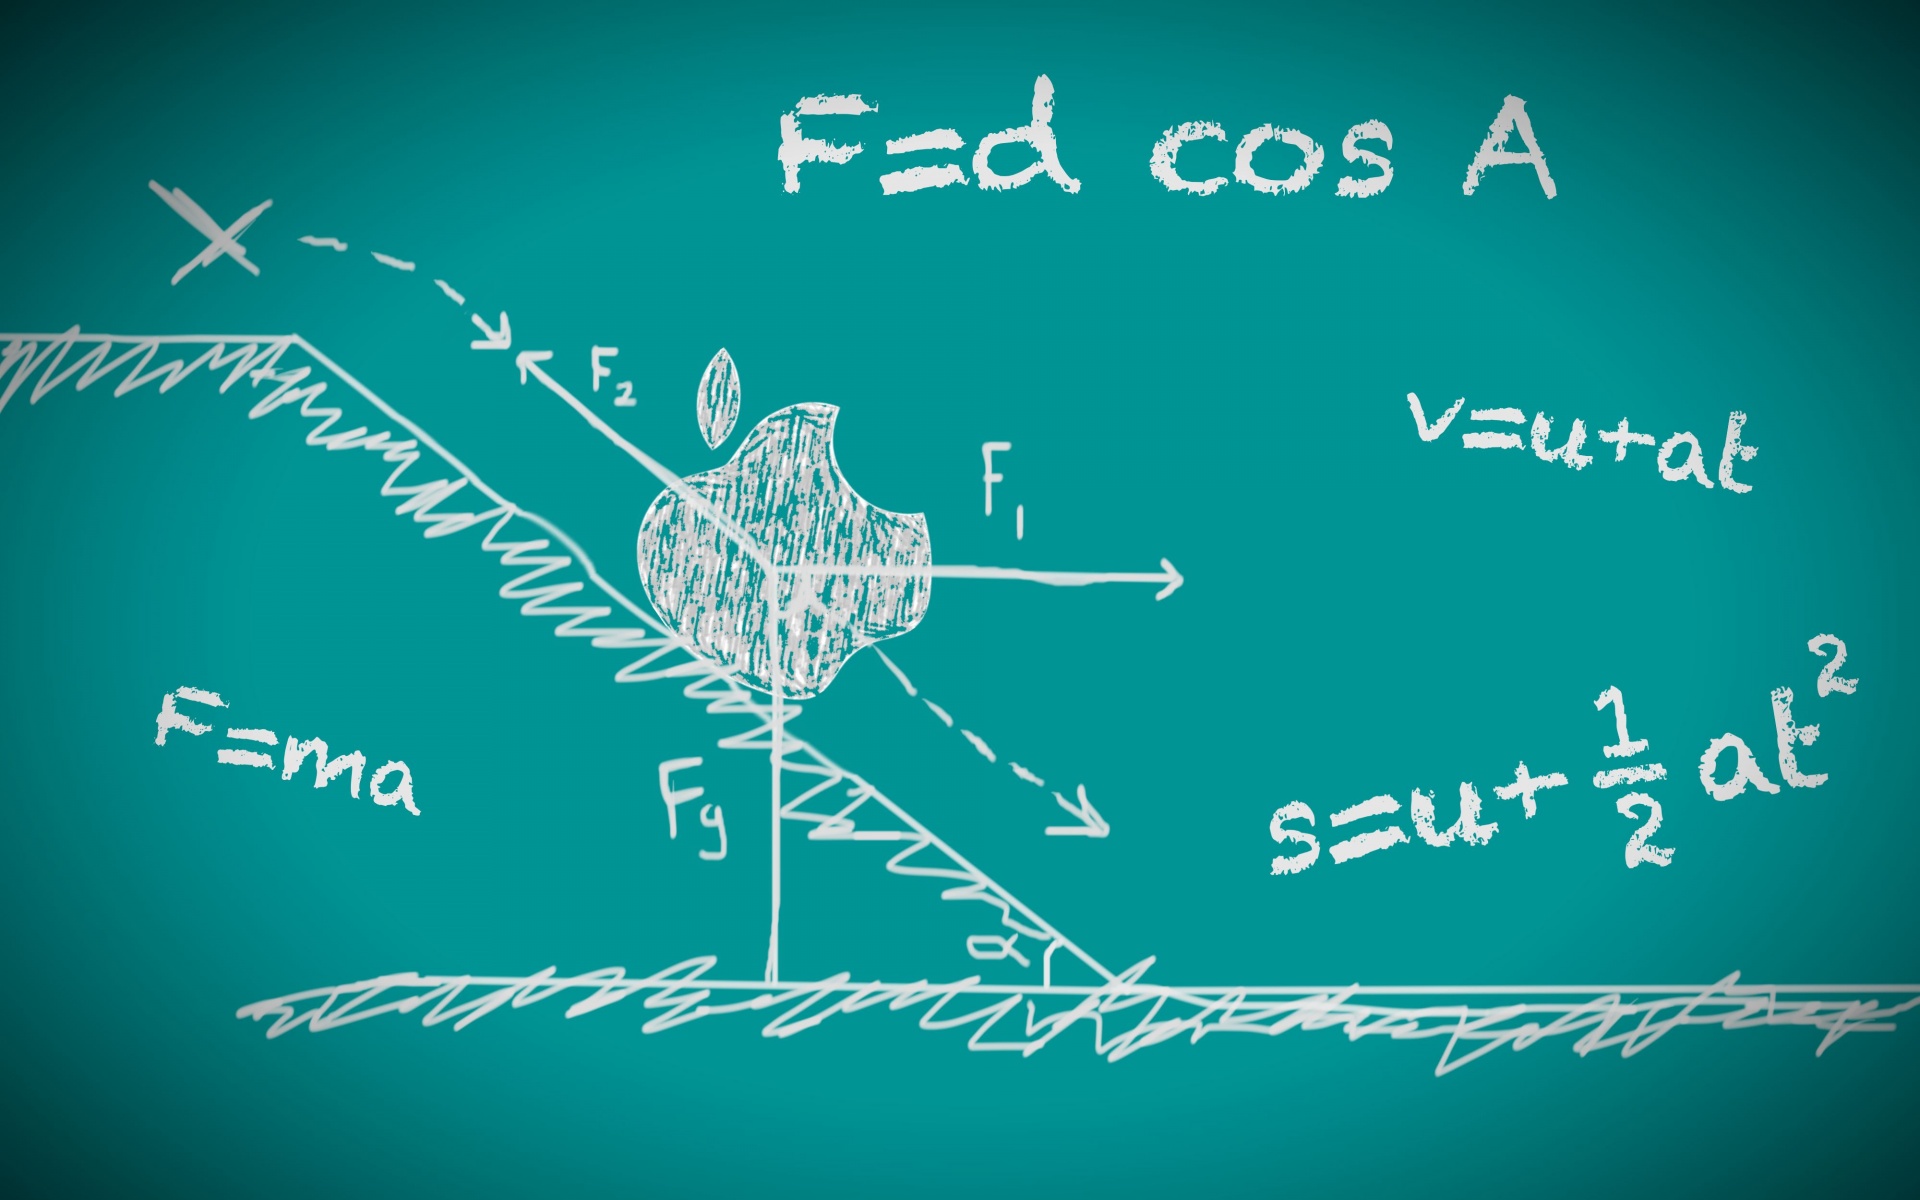 F=d cos A
F₂
F₁
v=u+at
F=ma
Fg
s=u+½at²
α